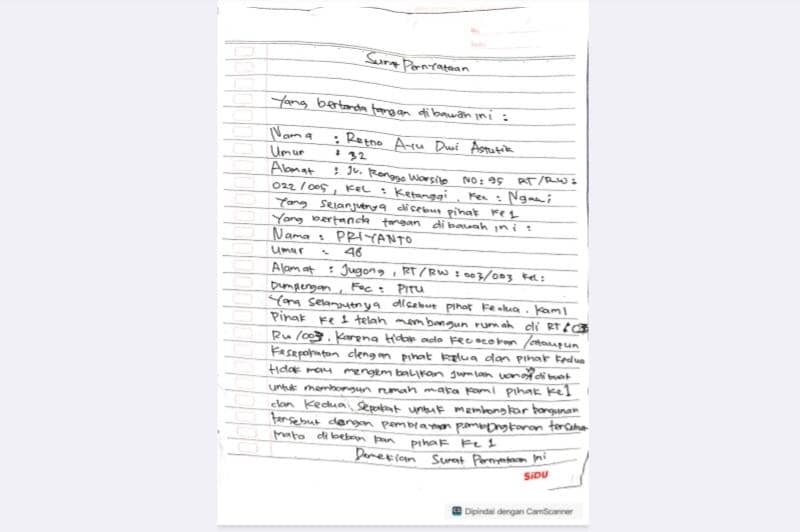 Surat Pernyataan
Yang bertanda tangan dibawah ini :
Nama : Retno Ayu Dwi Astutik
Umur : 32
Alamat : JL. Ronggo Warsito NO: 95 RT/RW :
022/005, KEL : Ketanggi, Kec : Ngawi
Yang selanjutnya disebut pihak ke 1
Yang bertanda tangan dibawah ini :
Nama : PRIYANTO
Umur : 48
Alamat : Jugong, RT/RW : 003/003 Kel :
Dumplengan, Kec : PITU
Yang selanjutnya disebut pihak kedua. Kami
Pihak ke 1 telah membangun rumah di RT/03
RW/003. Karena tidak ada kecocokan /ataupun
kesepakatan dengan pihak kedua dan pihak kedua
tidak mau mengembalikan jumlah uang dibuat
untuk membangun rumah maka kami pihak ke 1
dan kedua sepakat untuk membongkar bangunan
tersebut dengan pembiayaan pembongkaran tersebut
maka dibebankan pihak ke 1
Demekian Surat Pernyataan Ini
SiDU
Dipindai dengan CamScanner